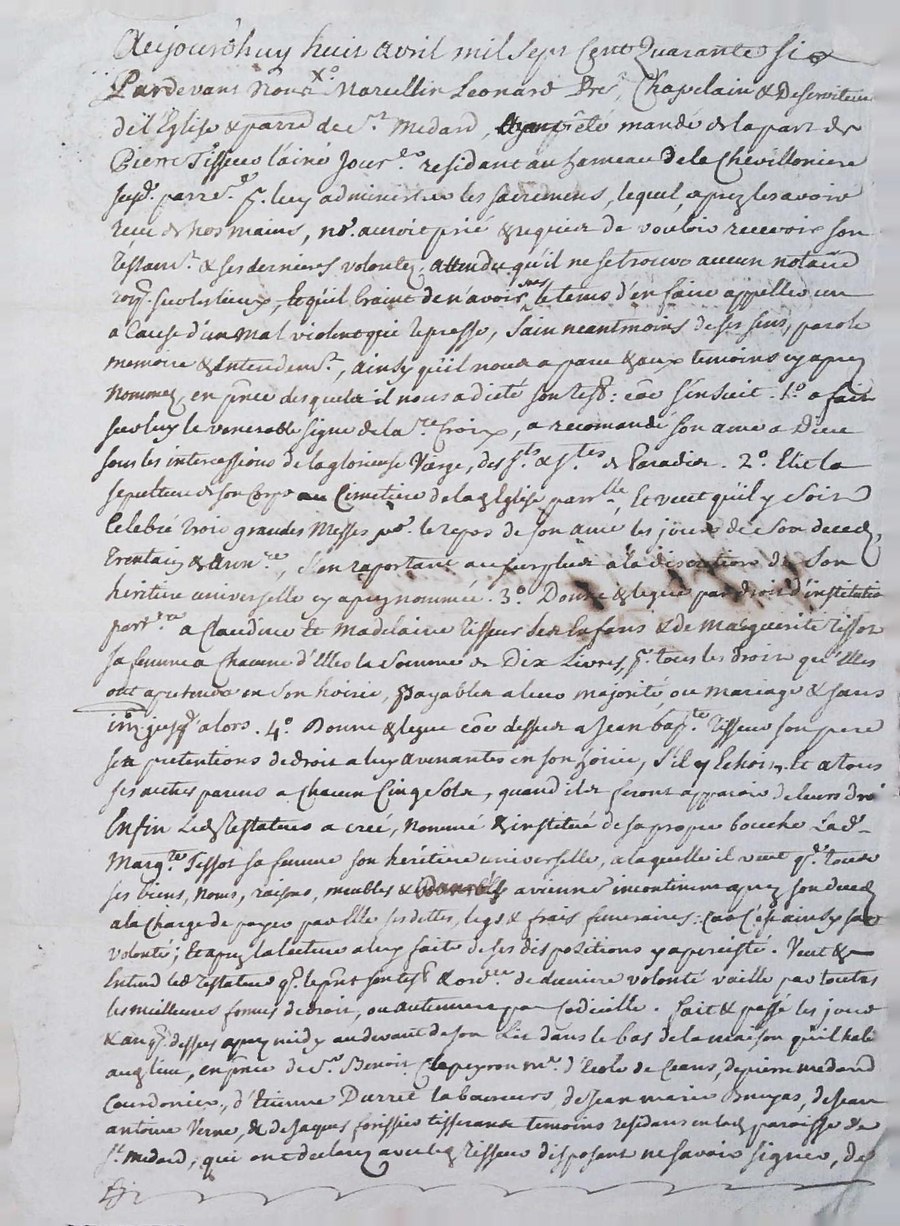 Aujourd'huy huit avril mil sept cent quarante six
Pardevant Nous Xo Marcellin Leonard Pre., Chapelain & Deserviteur
de l'Eglise & parre de St. Medard, été mandé de la part de
Pierre Tisseur l'ainé Jour.er residant au hameau de la Chevilloniere
susd. parre., p. luy administrer les sacremens, lequel, aprez les avoir
reçu de nos mains, ns. auroit prié & requier de vouloir recevoir son
testamt. & ses dernieres volontez, attendu qu'il ne se trouve aucun notaire
roy. sur les lieux, Et qu'il craint de n'avoir pas le tems d'en faire appeller un
a Cause d'un mal violent qui le presse, Sain neantmoins de ses sens, parole
memoire & Entendemt., ainsy qu'il nous a paru & aux temoins cy aprez
Nommez, en pnce desquels il nous a dicté son test: côe s'ensuit. 1.° a fait
sur luy le venerable signe de la Ste Croix, a recomandé son ame a Dieu
sous les intercessions de la glorieuse Vierge, des Sts & Stes de Paradis. 2.° Elit la
sepulture de son Corps au Cimetiere de la d. Eglise parrlle, Et veut qu'il y soit
Celebré trois grandes Messes pr. le repos de son ame les jours de son decez,
Trentain & Ann.re, S'en raportant au surplus a la discretion de Son
heritiere universelle cy aprez nommée. 3.° Donne & legue par droit d'institution
part.re a Claudine Et Madelaine Tisseur ses Enfans & de Marguerite Tissot
sa femme a Chacune d'Elles la somme de Dix Livres, p. tous les droits qu'Elles
ont a pretendre en son hoirie, Payables a leur majorité ou mariage & sans
int. jusq. alors. 4.° Donne & legue côe dessus a Jean bapte. Tisseur son pere
ses pretentions de droit a luy avenantes en son hoirie, S'il y Echoit, Et a tous
ses autres parens a Chacun Cinq Sols, quand ils seront apparoir de leurs droi
Enfin Led. Testateur a creé, nommé & institué de sa propre bouche Lad.
Marg.te Tissot sa femme son heritiere universelle, a laquelle il veut q. tous
ses biens, Noms, raisons, meubles & avienne incontinent aprez son decez
a la Charge de payer par Elle ses dettes, legs & frais funeraires: Car C'est ainsy sa
volonté; Et aprez la lecture a luy faite de ses dispositions y a persisté. Veut &
Entend led. Testateur q. le pnt son test & ordce de derniere volonté vaille par toutes
les meilleures formes de droit, ou autrement par Codicille. Fait & passé les jour
& an q. dessus aprez midy au devant de son Lit dans le bas de la maison qu'il habi
aud. lieu, en pnce de Sr. Benoit Clapeyron mre. d'Ecole de Ceans, de pierre medard
Courdonier, d'Etienne Darric laboureurs, de Jean marie Bruyas, de Jean
antoine Verne, & de Jaques forissier tisserand temoins residans en lad. paroisse de
St. Medard, qui ont declaré avec led. Tisseur disposant ne savoir signer, de